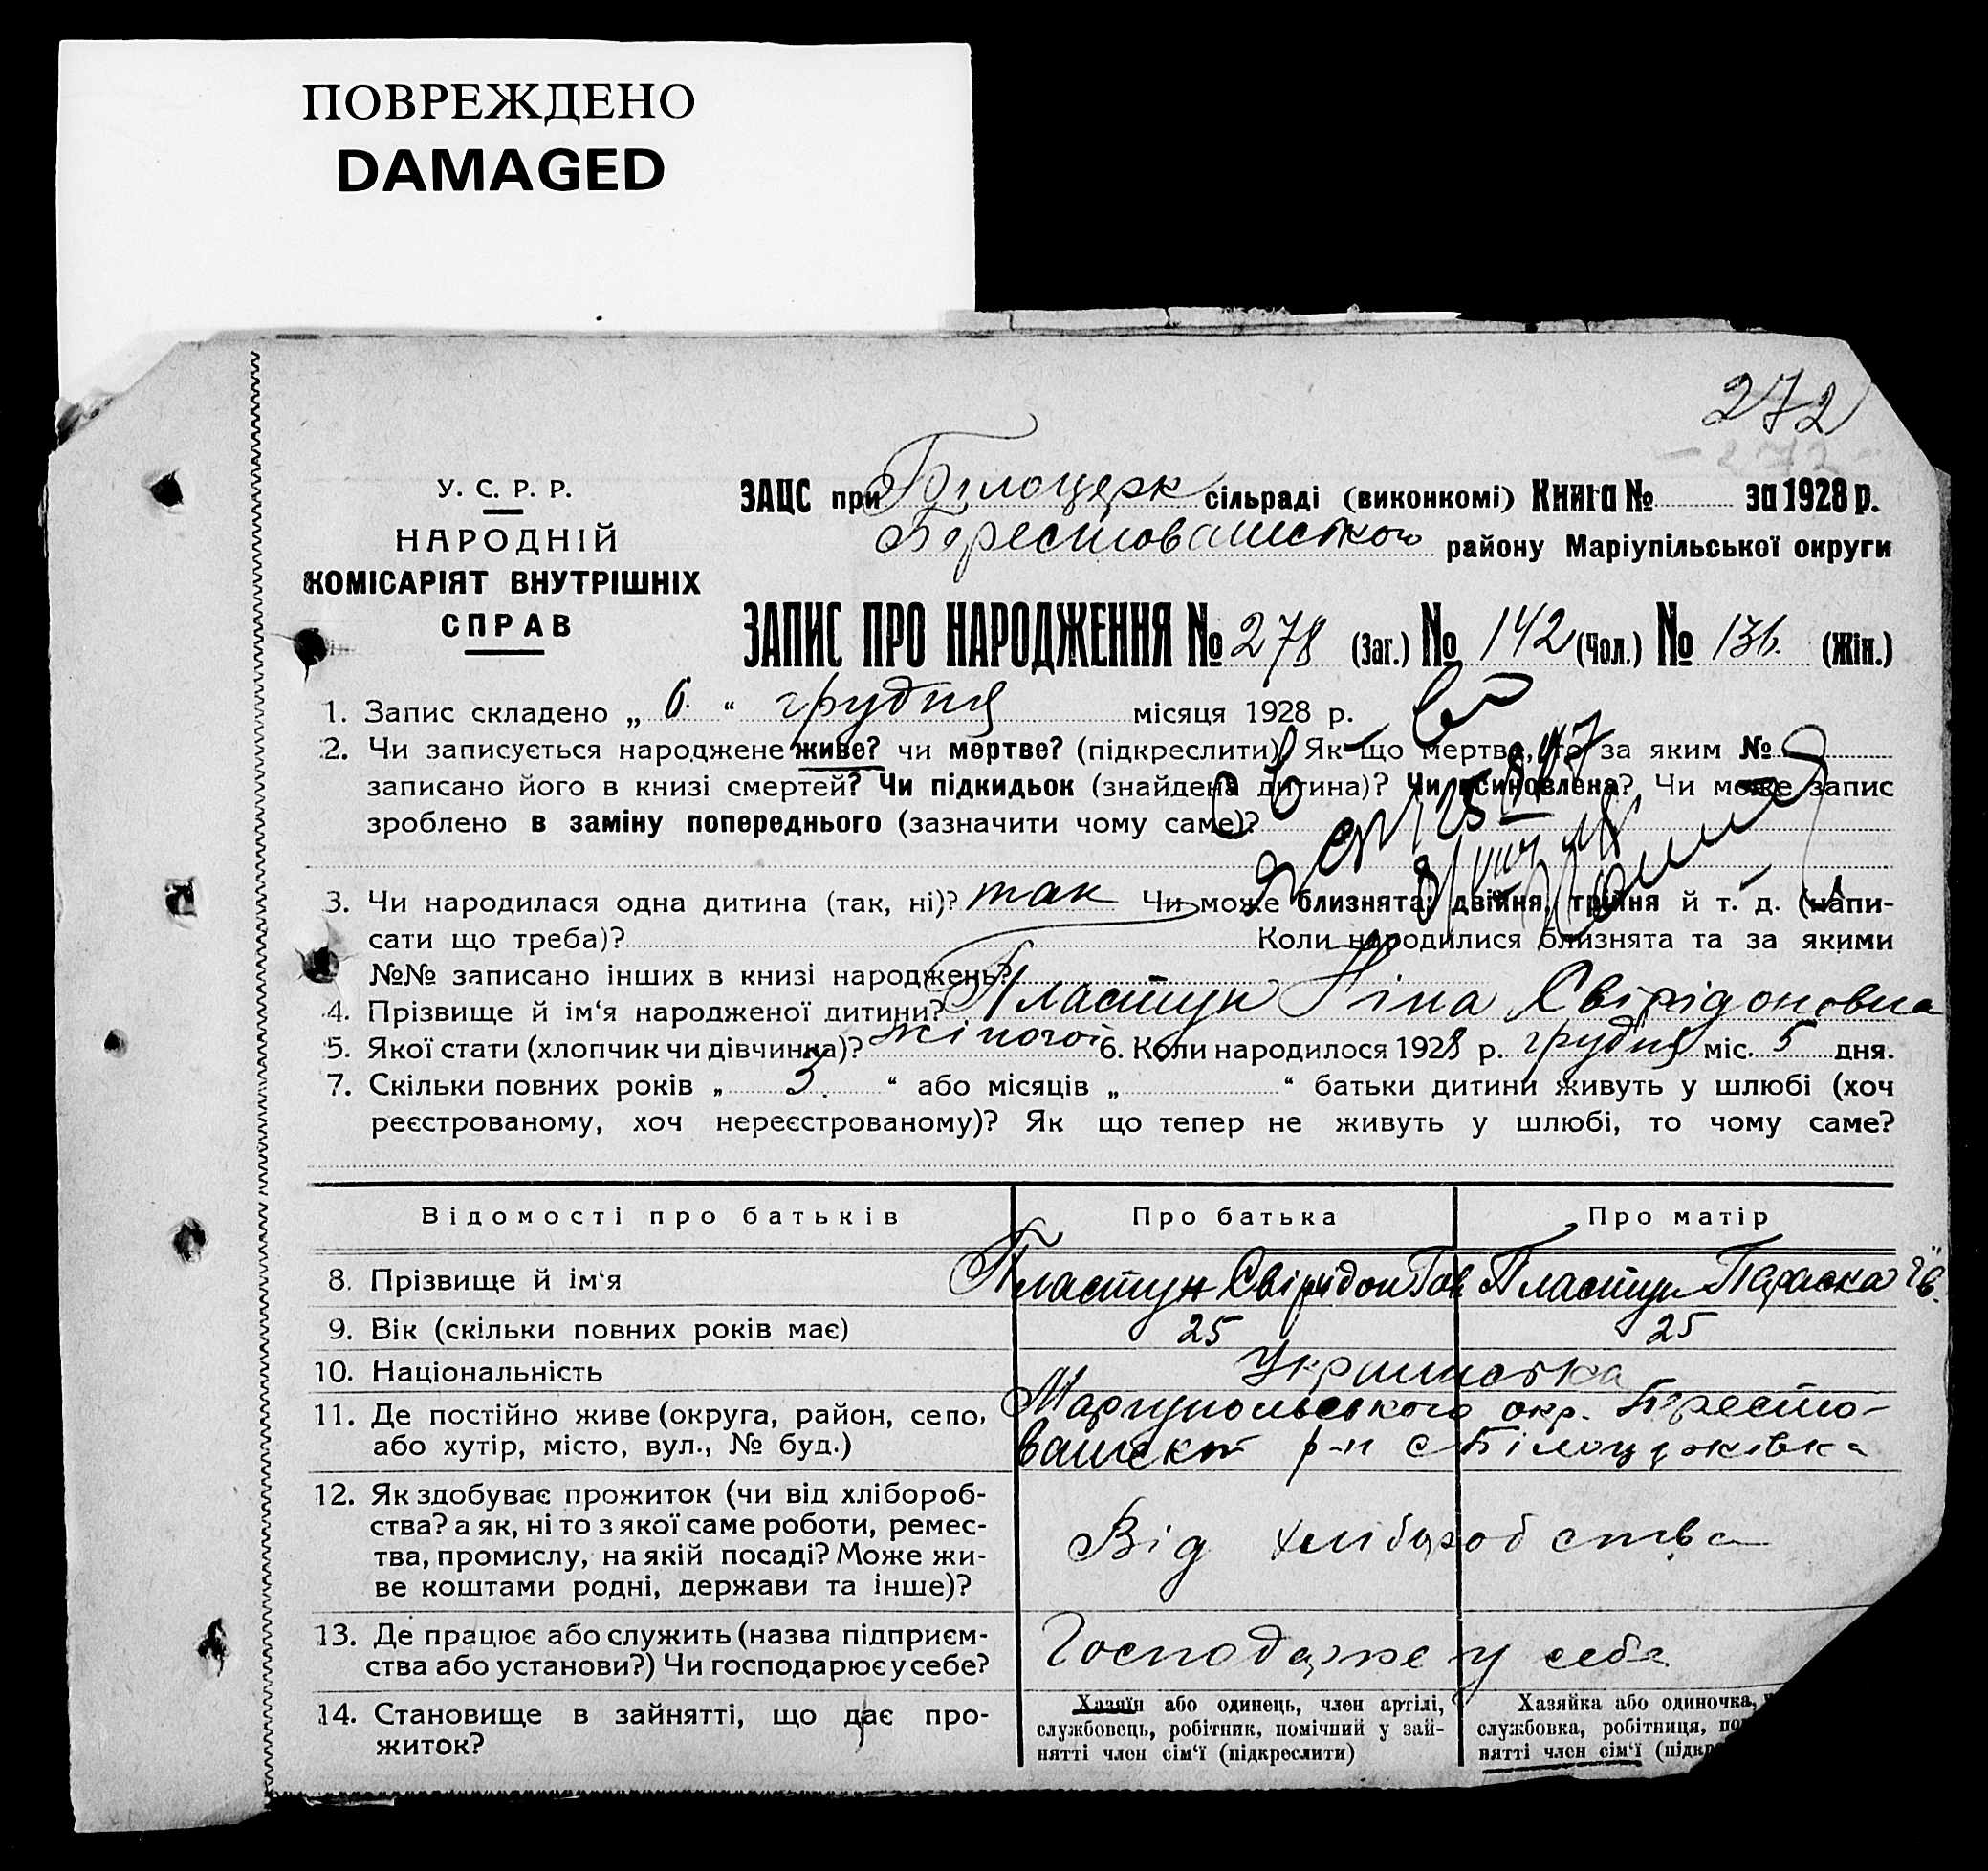 ПОВРЕЖДЕНО
DAMAGED
272
-272-
У. С. Р. Р.
НАРОДНІЙ
КОМІСАРІЯТ ВНУТРІШНІХ
СПРАВ
ЗАЦС при Білоцерк сільраді (виконкомі) Книга № за 1928 р.
району Маріупільської округи
ЗАПИС ПРО НАРОДЖЕННЯ № 278 (Заг.) № 142 (Чол.) № 136. (Жін.)
1. Запис складено „ 6. “ грудня місяця 1928 р.
2. Чи записується народжене живе? чи мертве? (підкреслити) Як що мертве, то за яким №
записано його в книзі смертей? Чи підкидьок (знайдена дитина)? Чи усиновлена? Чи може запис
зроблено в заміну попереднього (зазначити чому саме)?
3. Чи народилася одна дитина (так, ні)? так Чи може близнята: двійня, трійня й т. д. (напи-
сати що треба)? Коли народилися близнята та за якими
№№ записано інших в книзі народжень?
4. Прізвище й ім‘я народженої дитини? Пластун Ніна Свірідоновна
5. Якої стати (хлопчик чи дівчинка)? жіночої 6. Коли народилося 1928 р. грудня міс. 5 дня.
7. Скільки повних років „ 3. “ або місяців „ “ батьки дитини живуть у шлюбі (хоч
реєстрованому, хоч нереєстрованому)? Як що тепер не живуть у шлюбі, то чому саме?
Відомості про батьків Про батька Про матір
8. Прізвище й ім‘я Пластун Свірідон Пластун Параска
9. Вік (скільки повних років має) 25 25
10. Національність Українська
11. Де постійно живе (округа, район, село, Маріупольського окр. Бересто-
або хутір, місто, вул., № буд.) р-н с Білоцерківка
12. Як здобуває прожиток (чи від хлібороб-
ства? а як, ні то з якої саме роботи, ремес-
тва, промислу, на якій посаді? Може жи- Від хліборобства
ве коштами родні, держави та інше)?
13. Де працює або служить (назва підприєм-
ства або установи?) Чи господарює у себе? Господарює у себе
14. Становище в зайнятті, що дає про-
житок?
Хазяїн або одинець, член артілі,
службовець, робітник, помічний у зай-
нятті член сім‘ї (підкреслити)
Хазяйка або одиночка,
службовка, робітниця,
нятті член сім‘ї